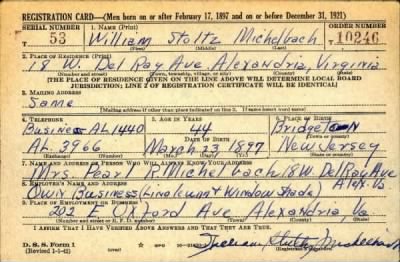 REGISTRATION CARD—(Men born on or after February 17, 1897 and on or before December 31, 1921)
SERIAL NUMBER 1. NAME (Print) ORDER NUMBER
S 53 William Stoltz Michelbach 10246
(First) (Middle) (Last)
2. PLACE OF RESIDENCE (Print)
18 W. Del Ray Ave Alexandria, Virginia
(Number and street) (Town, township, village, or city) (County) (State)
[THE PLACE OF RESIDENCE GIVEN ON THE LINE ABOVE WILL DETERMINE LOCAL BOARD
JURISDICTION; LINE 2 OF REGISTRATION CERTIFICATE WILL BE IDENTICAL]
3. MAILING ADDRESS
Same
[Mailing address if other than place indicated on line 2. If same insert word same]
4. TELEPHONE 5. AGE IN YEARS 6. PLACE OF BIRTH
Business AL 1440 44 Bridgeton
DATE OF BIRTH (Town or county)
AL. 3966 March 23 1897 New Jersey
(Exchange) (Number) (Mo.) (Day) (Yr.) (State or country)
7. NAME AND ADDRESS OF PERSON WHO WILL ALWAYS KNOW YOUR ADDRESS
Mrs. Pearl R. Michelbach 18 W. Del Ray Ave
8. EMPLOYER'S NAME AND ADDRESS Alex. Va
Own Business (Linoleum & Window Shade)
9. PLACE OF EMPLOYMENT OR BUSINESS
203 E. Ave Alexandria, Va
(Number and street or R. F. D. number) (Town) (County) (State)
I AFFIRM THAT I HAVE VERIFIED ABOVE ANSWERS AND THAT THEY ARE TRUE.
D. S. S. Form 1
(Revised 1-1-42) (over)
William Stoltz Michelbach